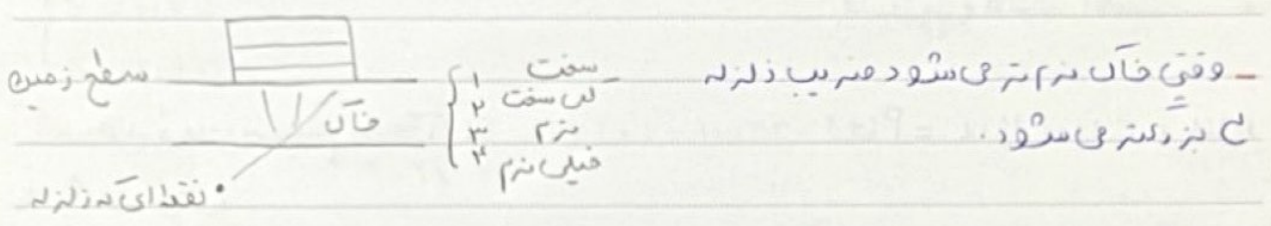 - وقتی خاک نرم‌تر می‌شود ضریب زلزله
بزرگتر می‌شود.
سطح زمین
خاک
۱ سخت
۲ کمی سخت
۳ نرم
۴ خیلی نرم
نقطه‌ای که زلزله